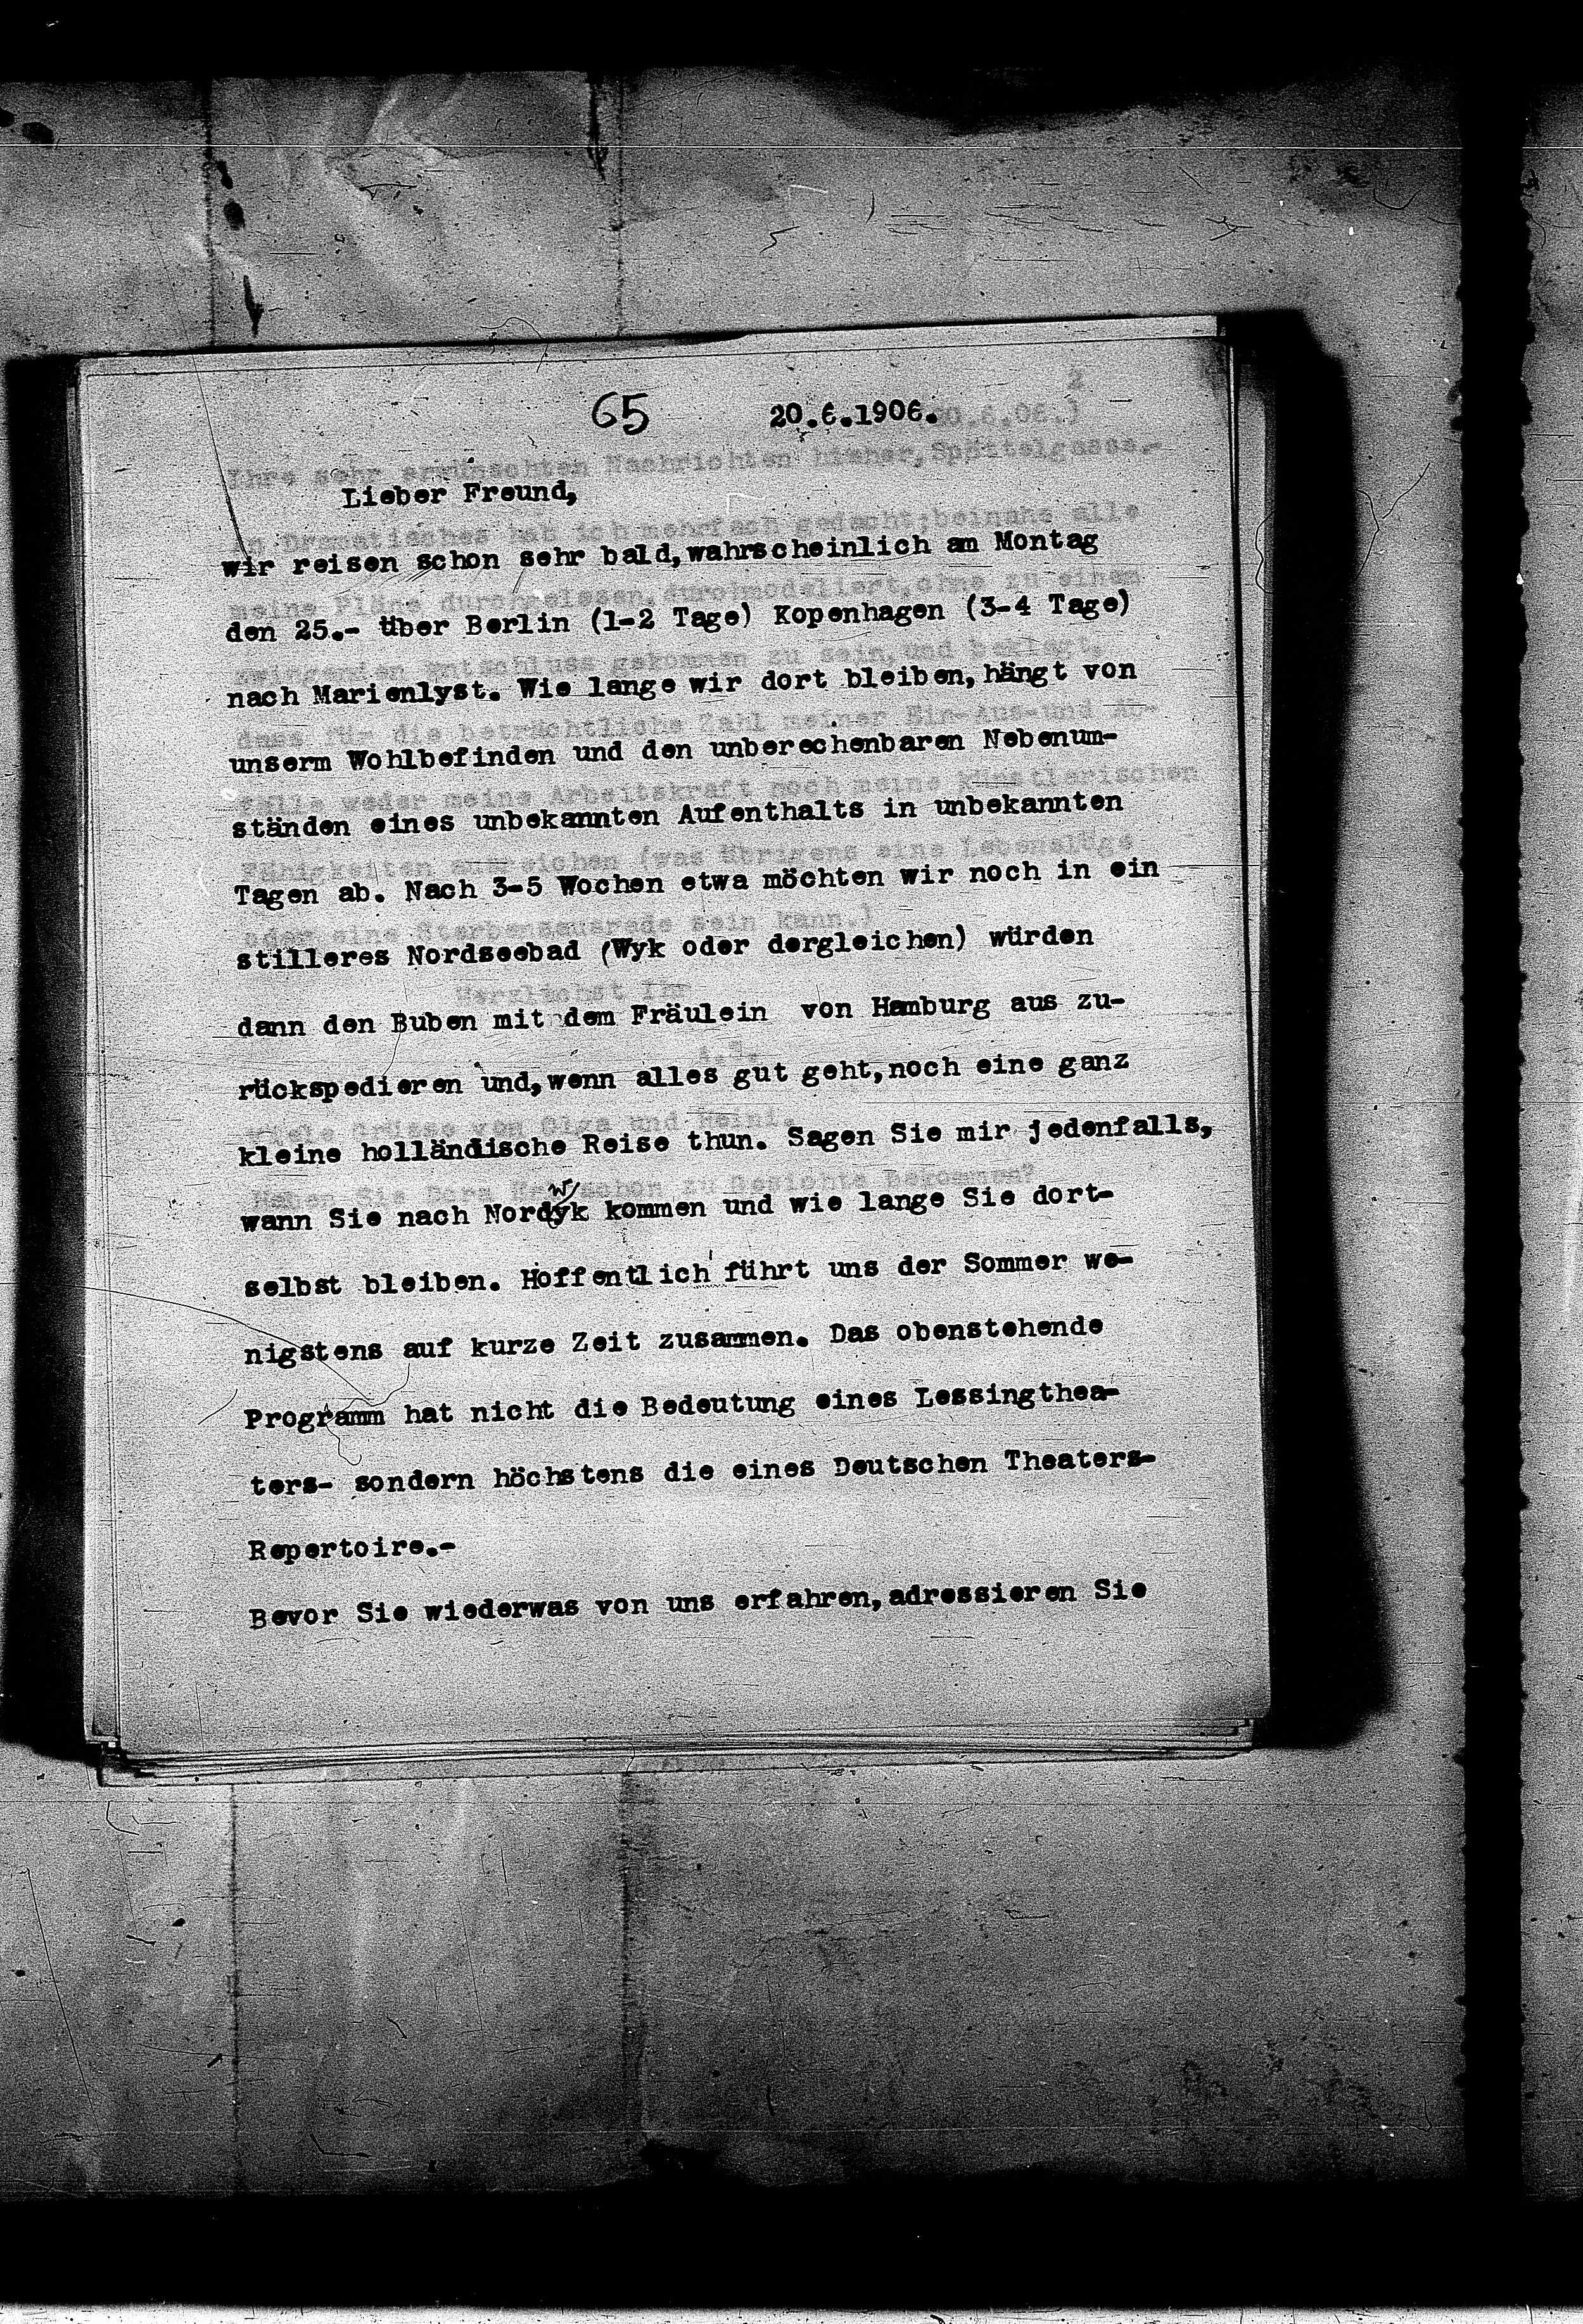 65
20.6.1906.
Lieber Freund,
wir reisen schon sehr bald,wahrscheinlich am Montag
den 25.- über Berlin (1-2 Tage) Kopenhagen (3-4 Tage)
nach Marienlyst. Wie lange wir dort bleiben,hängt von
unserm Wohlbefinden und den unberechenbaren Nebenum-
ständen eines unbekannten Aufenthalts in unbekannten
Tagen ab. Nach 3-5 Wochen etwa möchten wir noch in ein
stilleres Nordseebad (Wyk oder dergleichen) würden
dann den Buben mit dem Fräulein von Hamburg aus zu-
rückspedieren und,wenn alles gut geht,noch eine ganz
kleine holländische Reise thun. Sagen Sie mir jedenfalls,
wann Sie nach Nordwyk kommen und wie lange Sie dort-
selbst bleiben. Hoffentlich führt uns der Sommer we-
nigstens auf kurze Zeit zusammen. Das obenstehende
Programm hat nicht die Bedeutung eines Lessingthea-
ters- sondern höchstens die eines Deutschen Theaters-
Repertoire.-
Bevor Sie wiederwas von uns erfahren,adressieren Sie